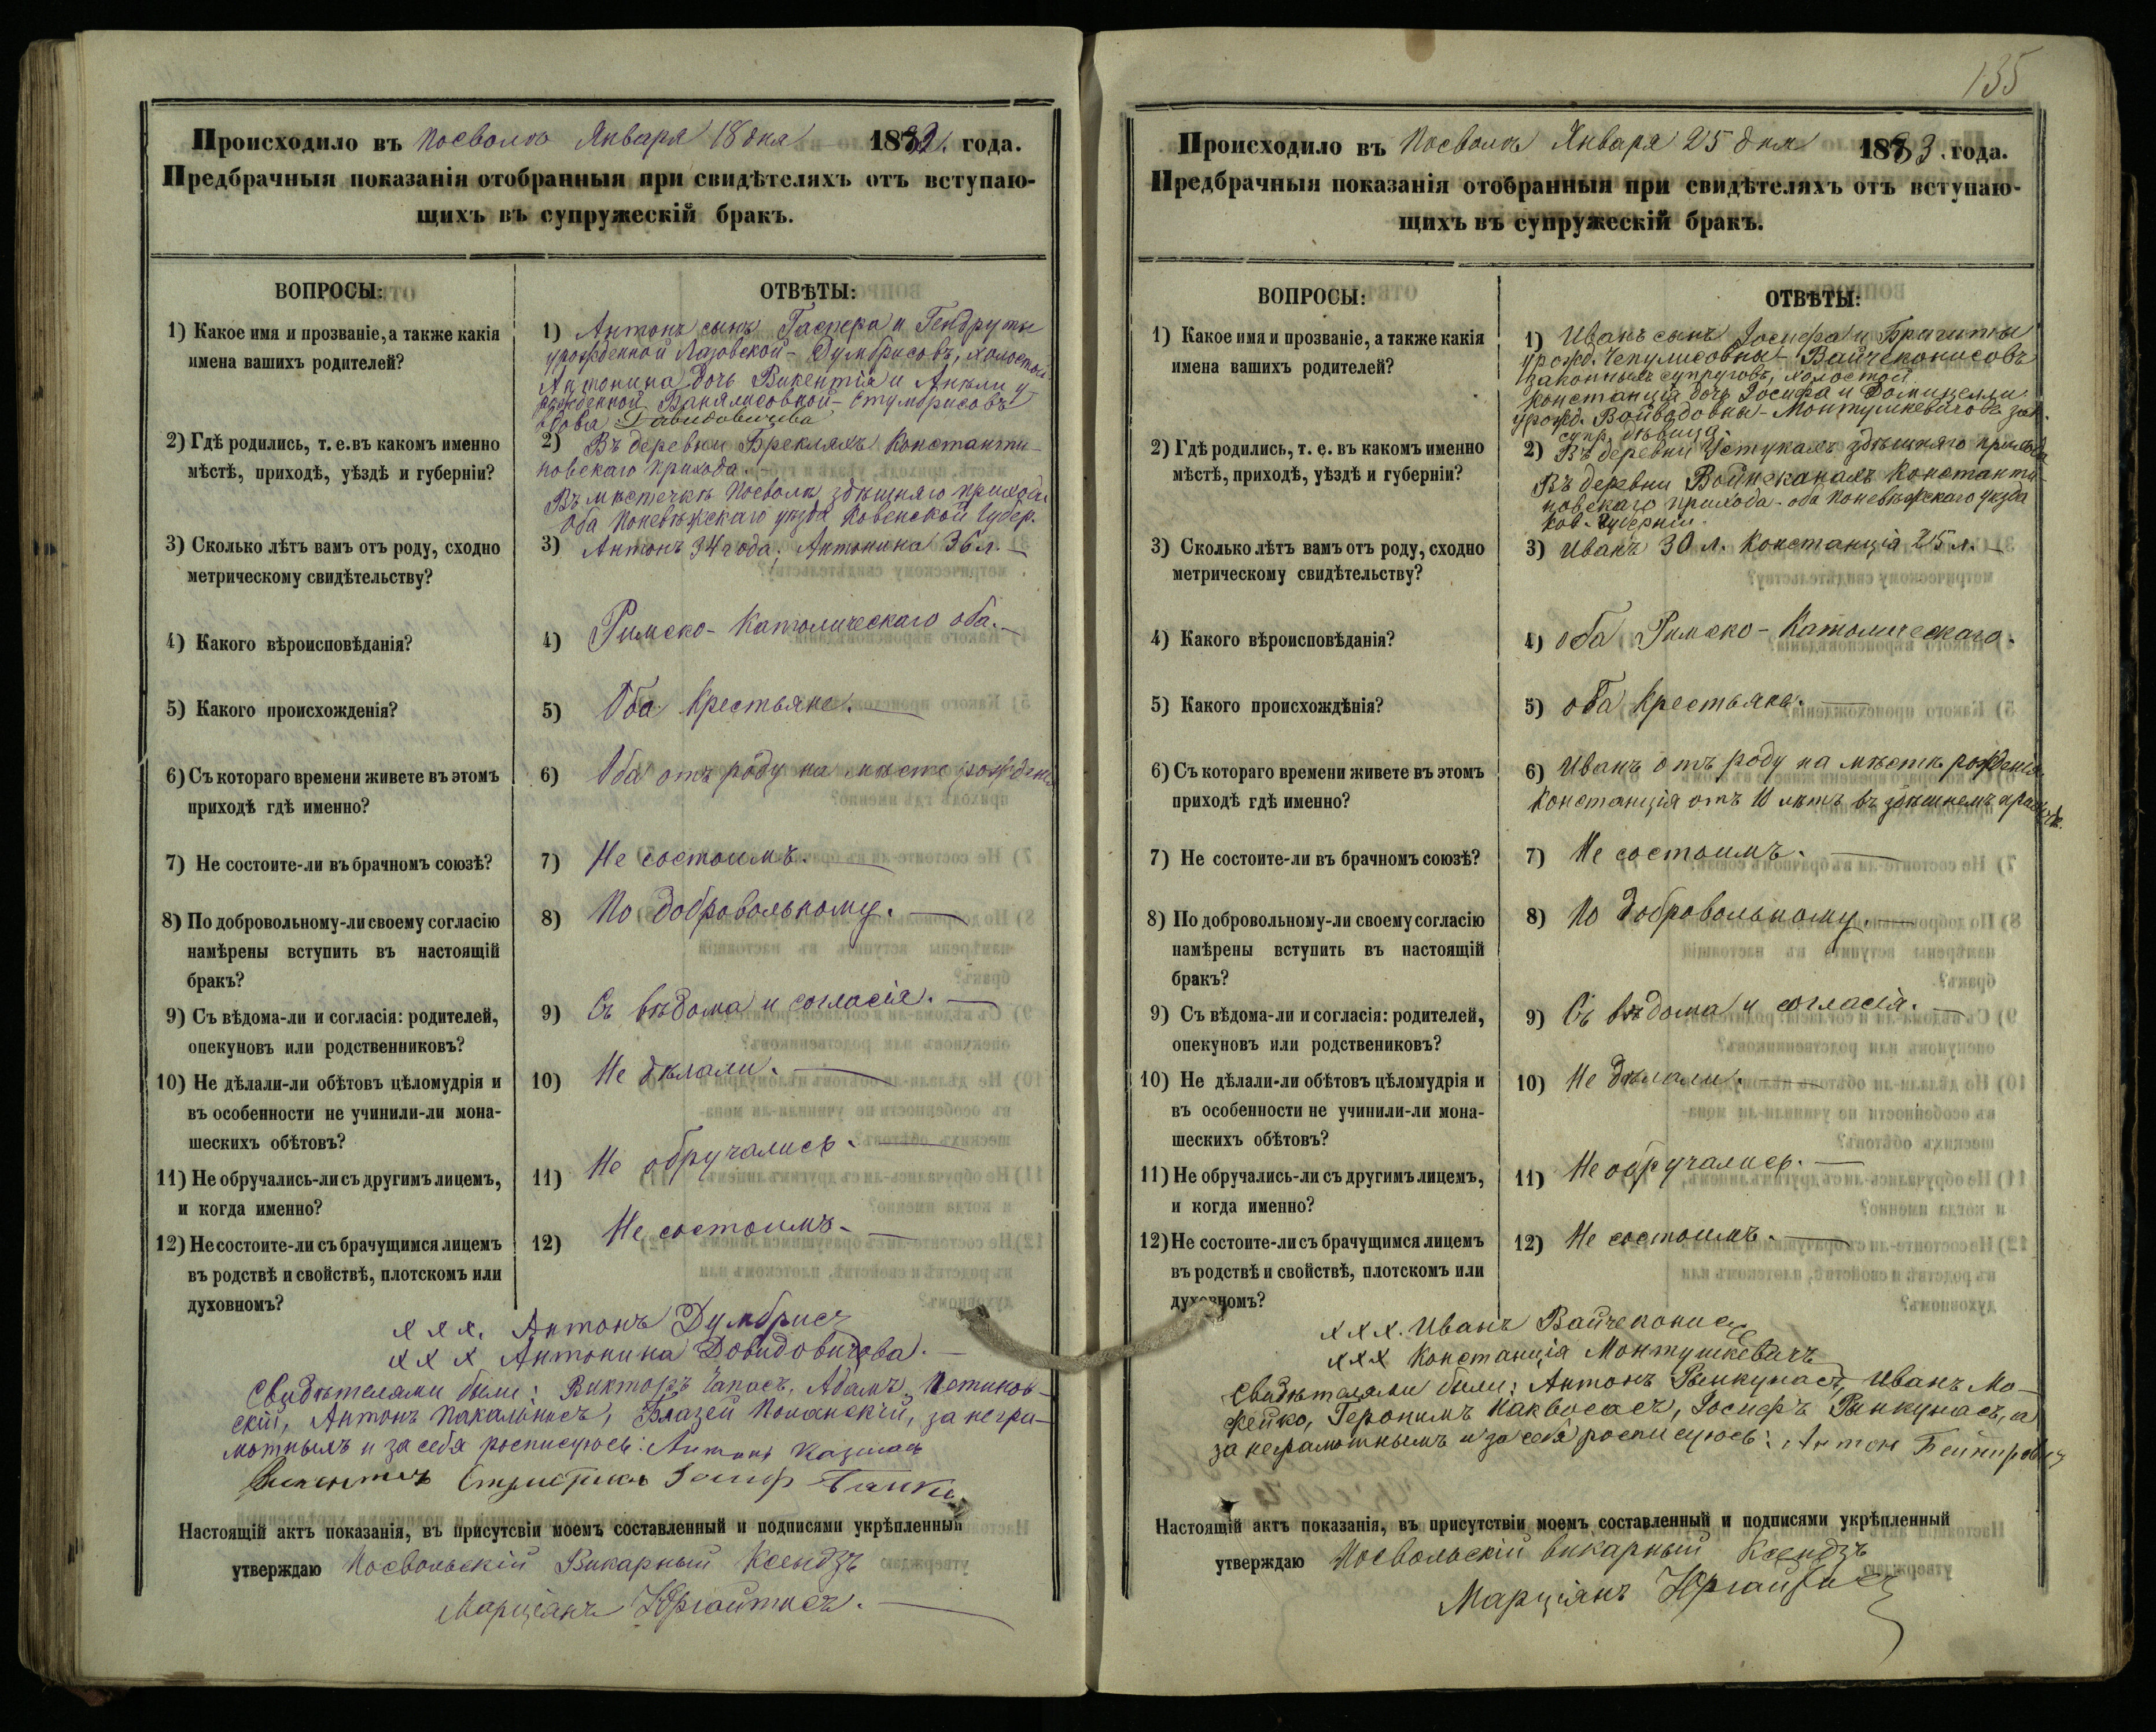 Происходило въ Посволѣ Января 18 дня 1883. года.
Предбрачныя показанія отобранныя при свидѣтеляхъ отъ вступаю-
щихъ въ супружескій бракъ.
ВОПРОСЫ:
ОТВѢТЫ:
1) Какое имя и прозваніе, а также какія
имена вашихъ родителей?
1) Антонъ сынъ Гаспера и Гендруты
урожденной Лазовской - Думбрисовъ, холостой
Антонина дочь Викентія и Анели у
рожденной - Стумбрисовъ
вдова Давидовичова
2) Гдѣ родились, т. е. въ какомъ именно
мѣстѣ, приходѣ, уѣздѣ и губерніи?
2) Въ деревни Брекляхъ Константи-
новскаго прихода.
Въ мѣстечкѣ Посволѣ здѣшняго прихода
оба Поневѣжскаго уѣзда Ковенской Губер.
3) Сколько лѣтъ вамъ отъ роду, сходно
метрическому свидѣтельству?
3) Антонъ 34 года; Антонина 36 л. —
4) Какого вѣроисповѣданія?
4) Римско-Католическаго оба. —
5) Какого происхожденія?
5) Оба Крестьяне. —
6) Съ котораго времени живете въ этомъ
приходѣ гдѣ именно?
6) Оба отъ роду на мѣсте рожденія
7) Не состоите-ли въ брачномъ союзѣ?
7) Не состоимъ. —
8) По добровольному-ли своему согласію
намѣрены вступить въ настоящій
бракъ?
8) По добровольному. —
9) Съ вѣдома-ли и согласія: родителей,
опекуновъ или родственниковъ?
9) Съ вѣдома и согласія. —
10) Не дѣлали-ли обѣтовъ цѣломудрія и
въ особенности не учинили-ли мона-
шескихъ обѣтовъ?
10) Не дѣлали. —
11) Не обручались-ли съ другимъ лицемъ,
и когда именно?
11) Не обручались. —
12) Не состоите-ли съ брачущимся лицемъ
въ родствѣ и свойствѣ, плотскомъ или
духовномъ?
12) Не состоимъ. —
ххх. Антонъ Думбрисъ
ххх Антонина Довидовичова. —
Свидѣтелями были: Викторъ Чапасъ, Адамъ Петинов-
скій, Антонъ Пакальнисъ, Блазей Поланскій, за негра-
мотныхъ и за себя росписуюсь: Антонъ
Викентій Іосиф
Настоящій актъ показанія, въ присутсвіи моемъ составленный и подписями укрѣпленный
утверждаю Посвольскій Викарный Ксендзъ
Марціянъ Юргайтисъ. —
135
Происходило въ Посволѣ Января 25 дня 1883. года.
Предбрачныя показанія отобранныя при свидѣтеляхъ отъ вступаю-
щихъ въ супружескій бракъ.
ВОПРОСЫ:
ОТВѢТЫ:
1) Какое имя и прозваніе, а также какія
имена вашихъ родителей?
1) Иванъ сынъ Іосифа и Бригитты
урожд. Чепулисовны - Вайчеконисовъ
законныхъ супруговъ, холостой
Констанція дочь Іосифа и Доминцели
урожд. Войводовны - Монтушкевичовъ зак.
супр. дѣвица
2) Гдѣ родились, т. е. въ какомъ именно
мѣстѣ, приходѣ, уѣздѣ и губерніи?
2) Въ деревни Устукахъ здѣшняго прихода
Въ деревни Войшканахъ Константи-
новскаго прихода - оба Поневѣжскаго уѣзда
Ков. Губерніи.
3) Сколько лѣтъ вамъ отъ роду, сходно
метрическому свидѣтельству?
3) Иванъ 30 л. Констанція 25 л. —
4) Какого вѣроисповѣданія?
4) оба Римско-Католическаго.
5) Какого происхождѣнія?
5) оба Крестьяне. —
6) Съ котораго времени живете въ этомъ
приходѣ гдѣ именно?
6) Иванъ отъ роду на мѣстѣ рожденія
Констанція отъ 10 лѣтъ въ здѣшнемъ приходѣ.
7) Не состоите-ли въ брачномъ союзѣ?
7) Не состоимъ. —
8) По добровольному-ли своему согласію
намѣрены вступить въ настоящій
бракъ?
8) По добровольному. —
9) Съ вѣдома-ли и согласія: родителей,
опекуновъ или родствениковъ?
9) Съ вѣдома и согласія. —
10) Не дѣлали-ли обѣтовъ цѣломудрія и
въ особенности не учинили-ли мона-
шескихъ обѣтовъ?
10) Не дѣлали. —
11) Не обручались-ли съ другимъ лицемъ,
и когда именно?
11) Не обручались. —
12) Не состоите-ли съ брачущимся лицемъ
въ родствѣ и свойствѣ, плотскомъ или
духовномъ?
12) Не состоимъ. —
ххх. Иванъ Вайчеконисъ
ххх Констанція Монтушкевичъ
Свидѣтелями были: Антонъ Рынкунасъ, Иванъ Мо-
жейко, Геронимъ Паквосасъ, Іосифъ Рынкунасъ, а
за неграмотныхъ и за себя росписуюсь: Антон
Настоящій актъ показанія, въ присутствіи моемъ составленный и подписями укрѣпленный
утверждаю Посвольскій викарный Ксендзъ
Марціянъ Юргайтисъ